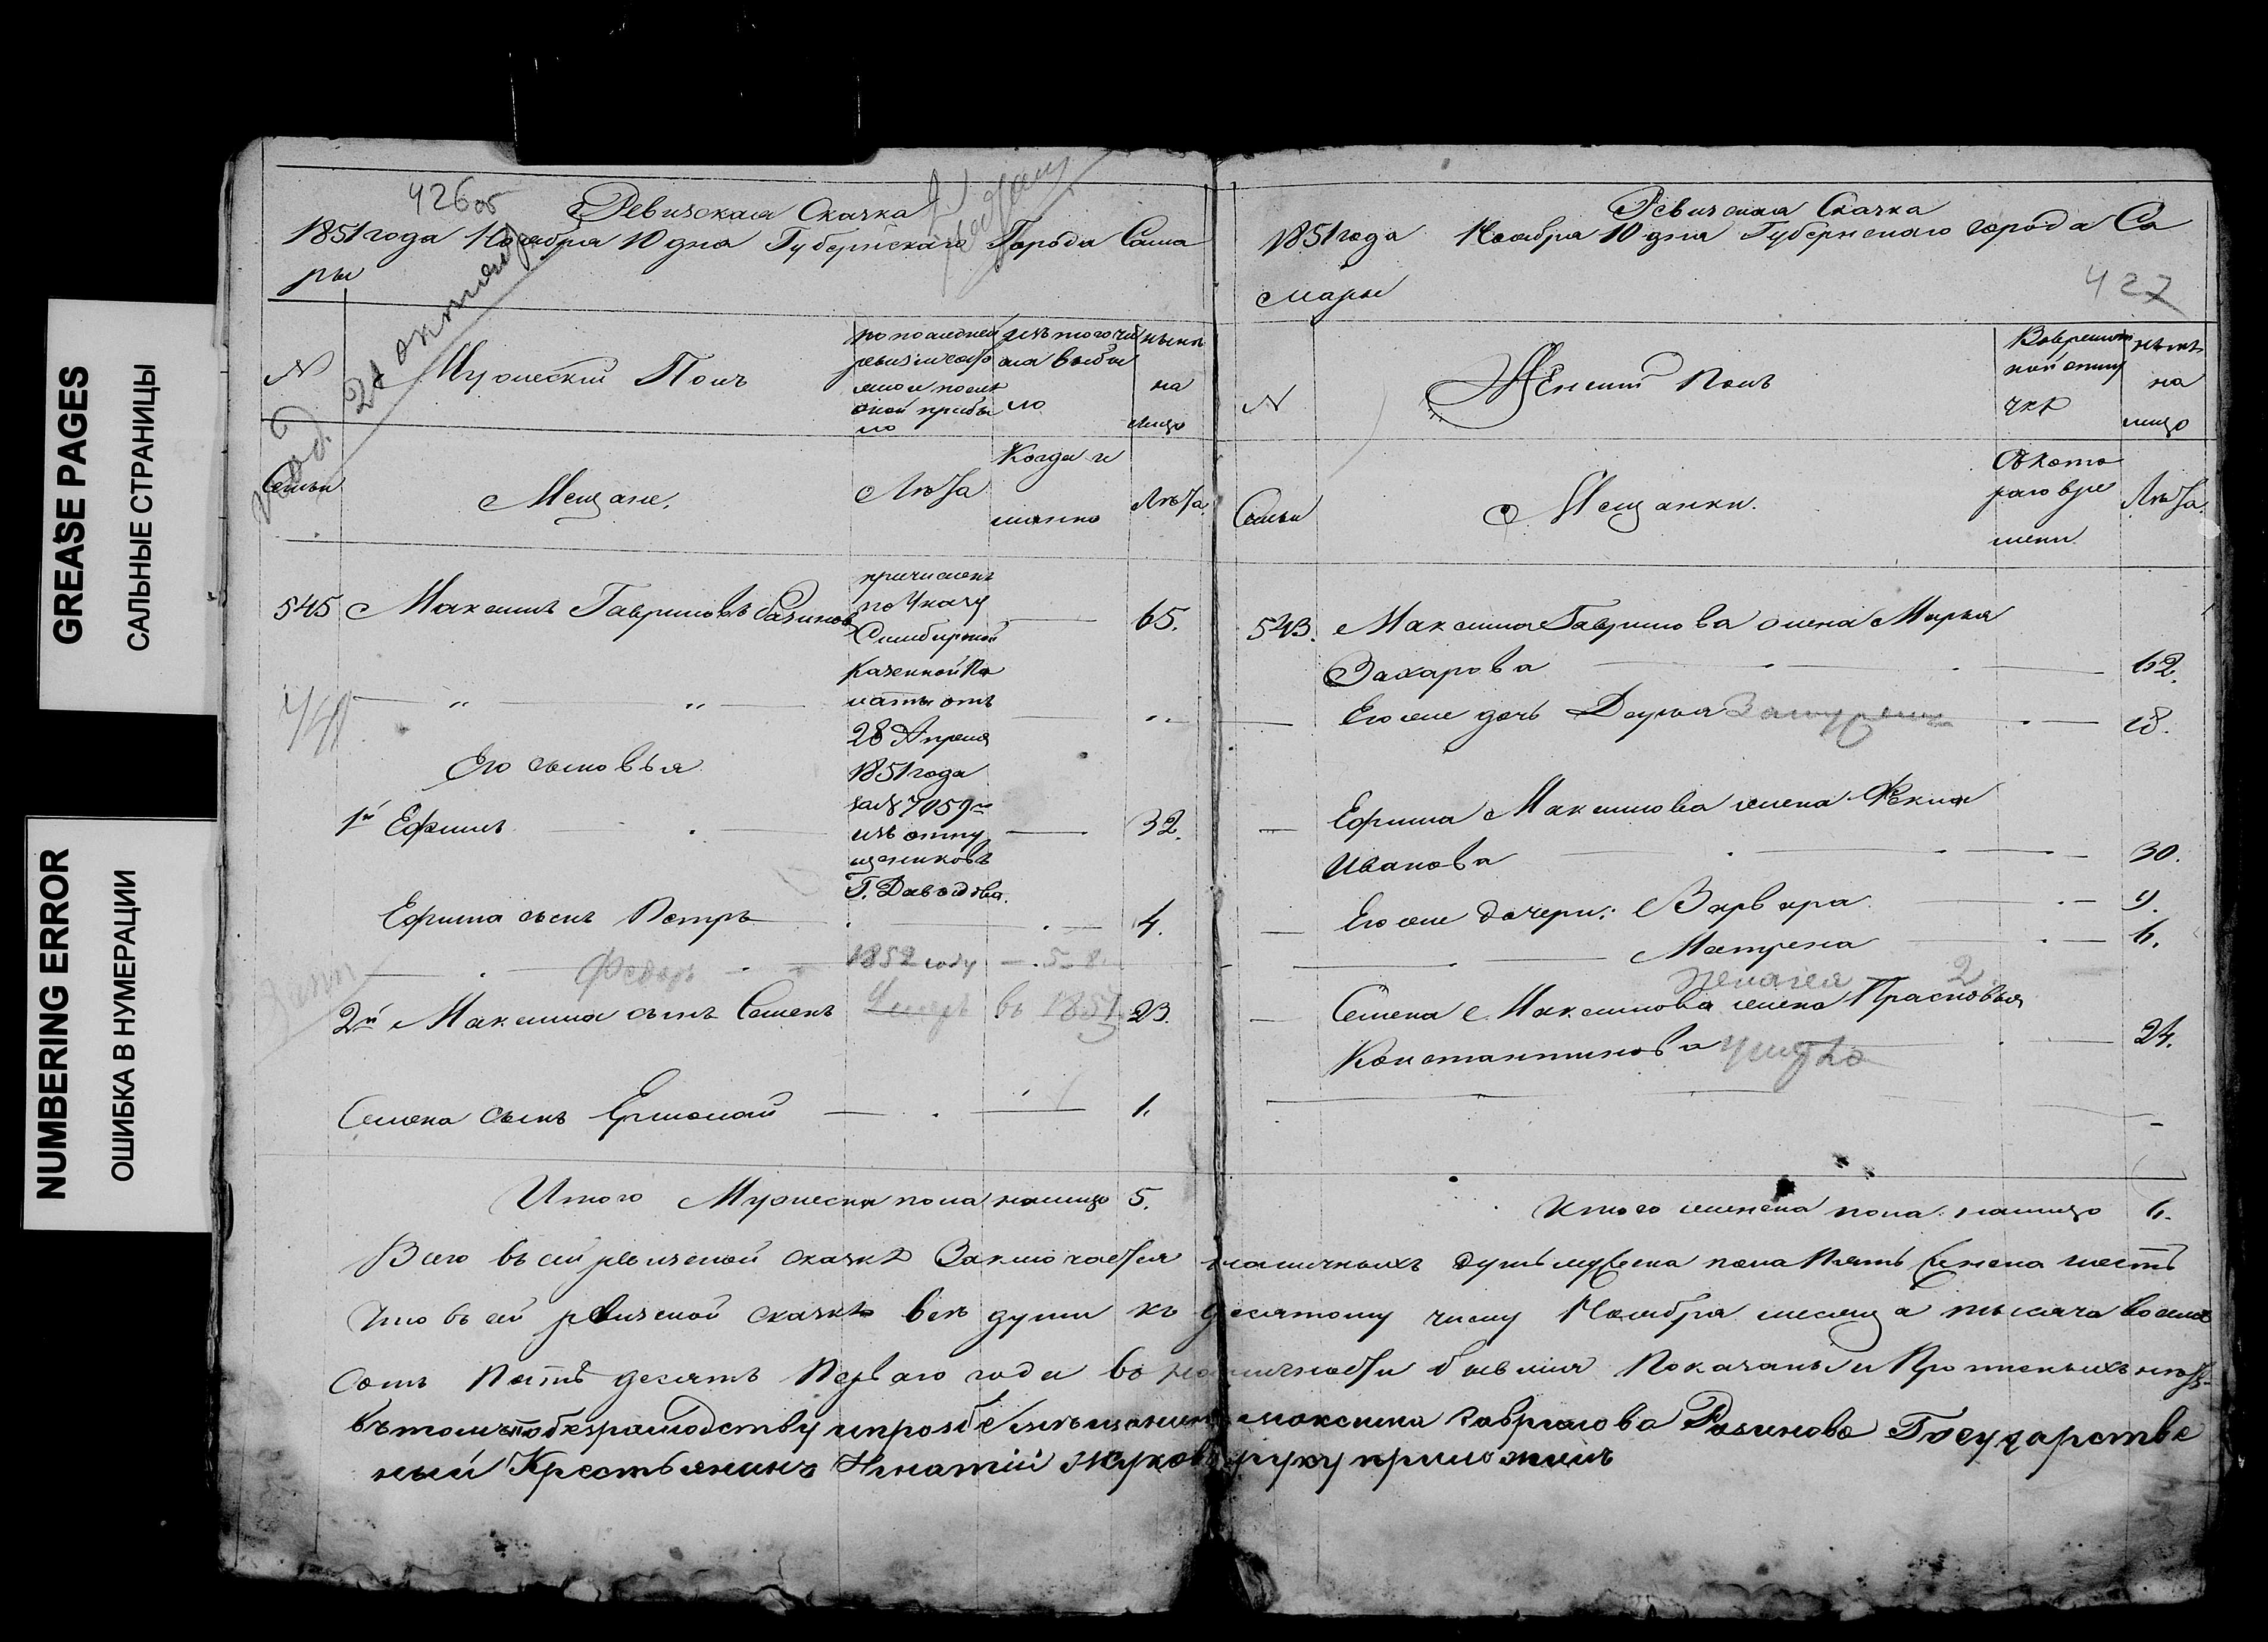 GREASE PAGES
САЛЬНЫЕ СТРАНИЦЫ
NUMBERING ERROR
ОШИБКА В НУМЕРАЦИИ
426об
Ревизская Сказка
1851 года Ноября 10 дня Губернскаго Города Сама
ры
N
Мужеский Полъ
по последней
ревизии состо
яло и после
оной прибы
ло
изъ того чи
сла выбы
ло
ныне
на
лицо
Семьи
Мещане.
Лѣта
Когда и
именно
Лѣта.
545 Максимъ Гавриловъ Разиновъ
65.
причисленъ
по Указу
Симбирской
Казенной Па
латы отъ
28 Апреля
1851 года
за № 7059м
изъ отпу
щенниковъ
Г. Давыдова.
Его сыновья
1й Ефимъ 32.
Ефима сынъ Петръ 4.
Федоръ 1852 году 5-8.
2й Максима сынъ Семенъ Умеръ въ 23.
Семена сынъ Ермолай 1.
Итого Мужеска пола налицо 5.
Ревизская Сказка
1851 года Ноября 10 дня Губернскаго города Са
мары
427
N
Женский Полъ
Во времен
ной отлу
чке
ныне
на
лицо
Семьи
Мещанки.
Съ кото
раго вре
мени
Лѣта.
543. Максима Гаврилова жена Марья
Захарова 62.
Его же дочь Дарья 18.
Ефима Максимова жена Фекла
Иванова 30.
Его же дочери: Варвара 9.
Матрена 6.
Пелагея 2
Семена Максимова жена Прасковья
Константинова 24.
Итого женска пола налицо 6.
Всего въ сей ревизской сказке Заключается наличныхъ душъ мужеска пола Пять женска шесть
Что въ сей ревизской сказке все души къ десятому числу Ноября месяца тысяча восемь
сотъ Пять десятъ Перваго года въ наличности бывшия Показаны и Прописныхъ нетъ
въ томъ по безграмотству и прозбе мещанина максима Гаврилова Разинова Государстве
ный Крестьянинъ Игнатий Жуковъ руку приложилъ